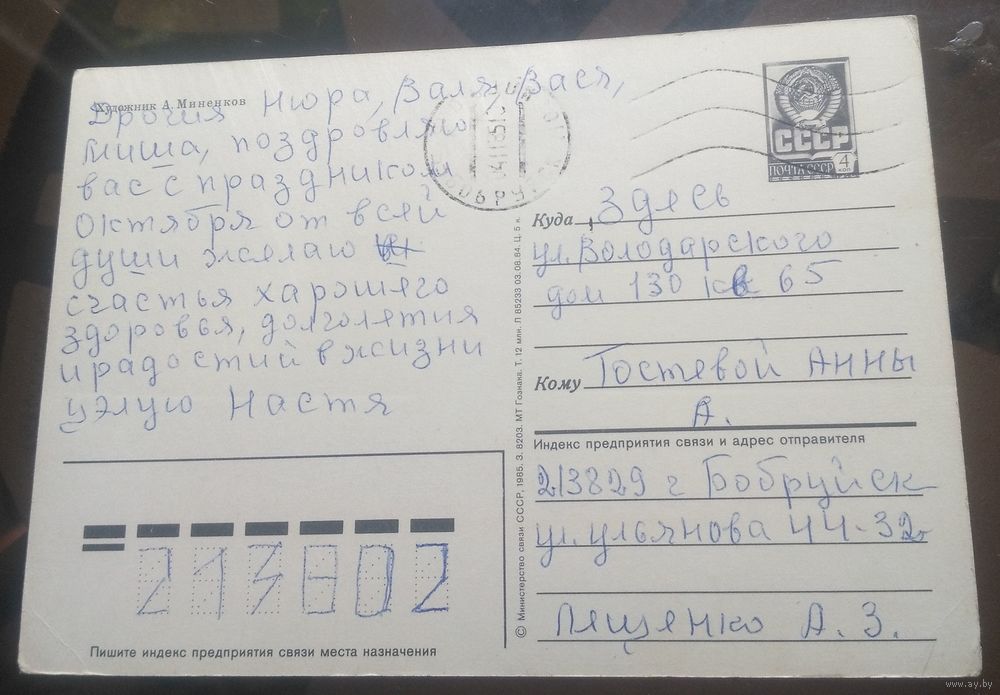 Художник А. Миненков
Дрогия Нюра, Валя, Вася,
Миша, поздровляю
вас с праздником
Октября от всей
души желаю
счастья харошего
здоровья, долголетия
и радостий в жизни
цэлую Настя
СССР
ПОЧТА СССР 4 коп
Куда Здесь
ул. Володарского
дом 130 кв 65
Кому Гостевой Анны
А.
Индекс предприятия связи и адрес отправителя
213829 г Бобруйск
ул. Ульянова 44-32
Лященко А. З.
213802
Пишите индекс предприятия связи места назначения
© Министерство связи СССР, 1985. З. 8203. МТ Гознака. Т. 12 млн. Л 85233 03.08.84. Ц. 5 к.
www.ay.by